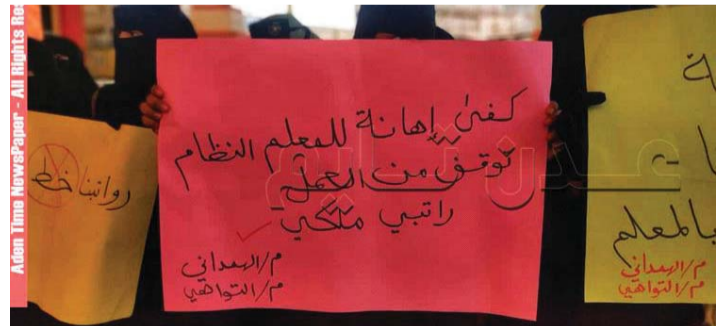 Aden Time NewsPaper - All Rights Res
كفى إهانة للمعلم النظام
توقف من العمل
راتبي ملكي
م/الهمداني
م/التواهي
عدن تايم
رواتبنا خط
ة
بالمعلم
م/الهمداني
م/التواهي